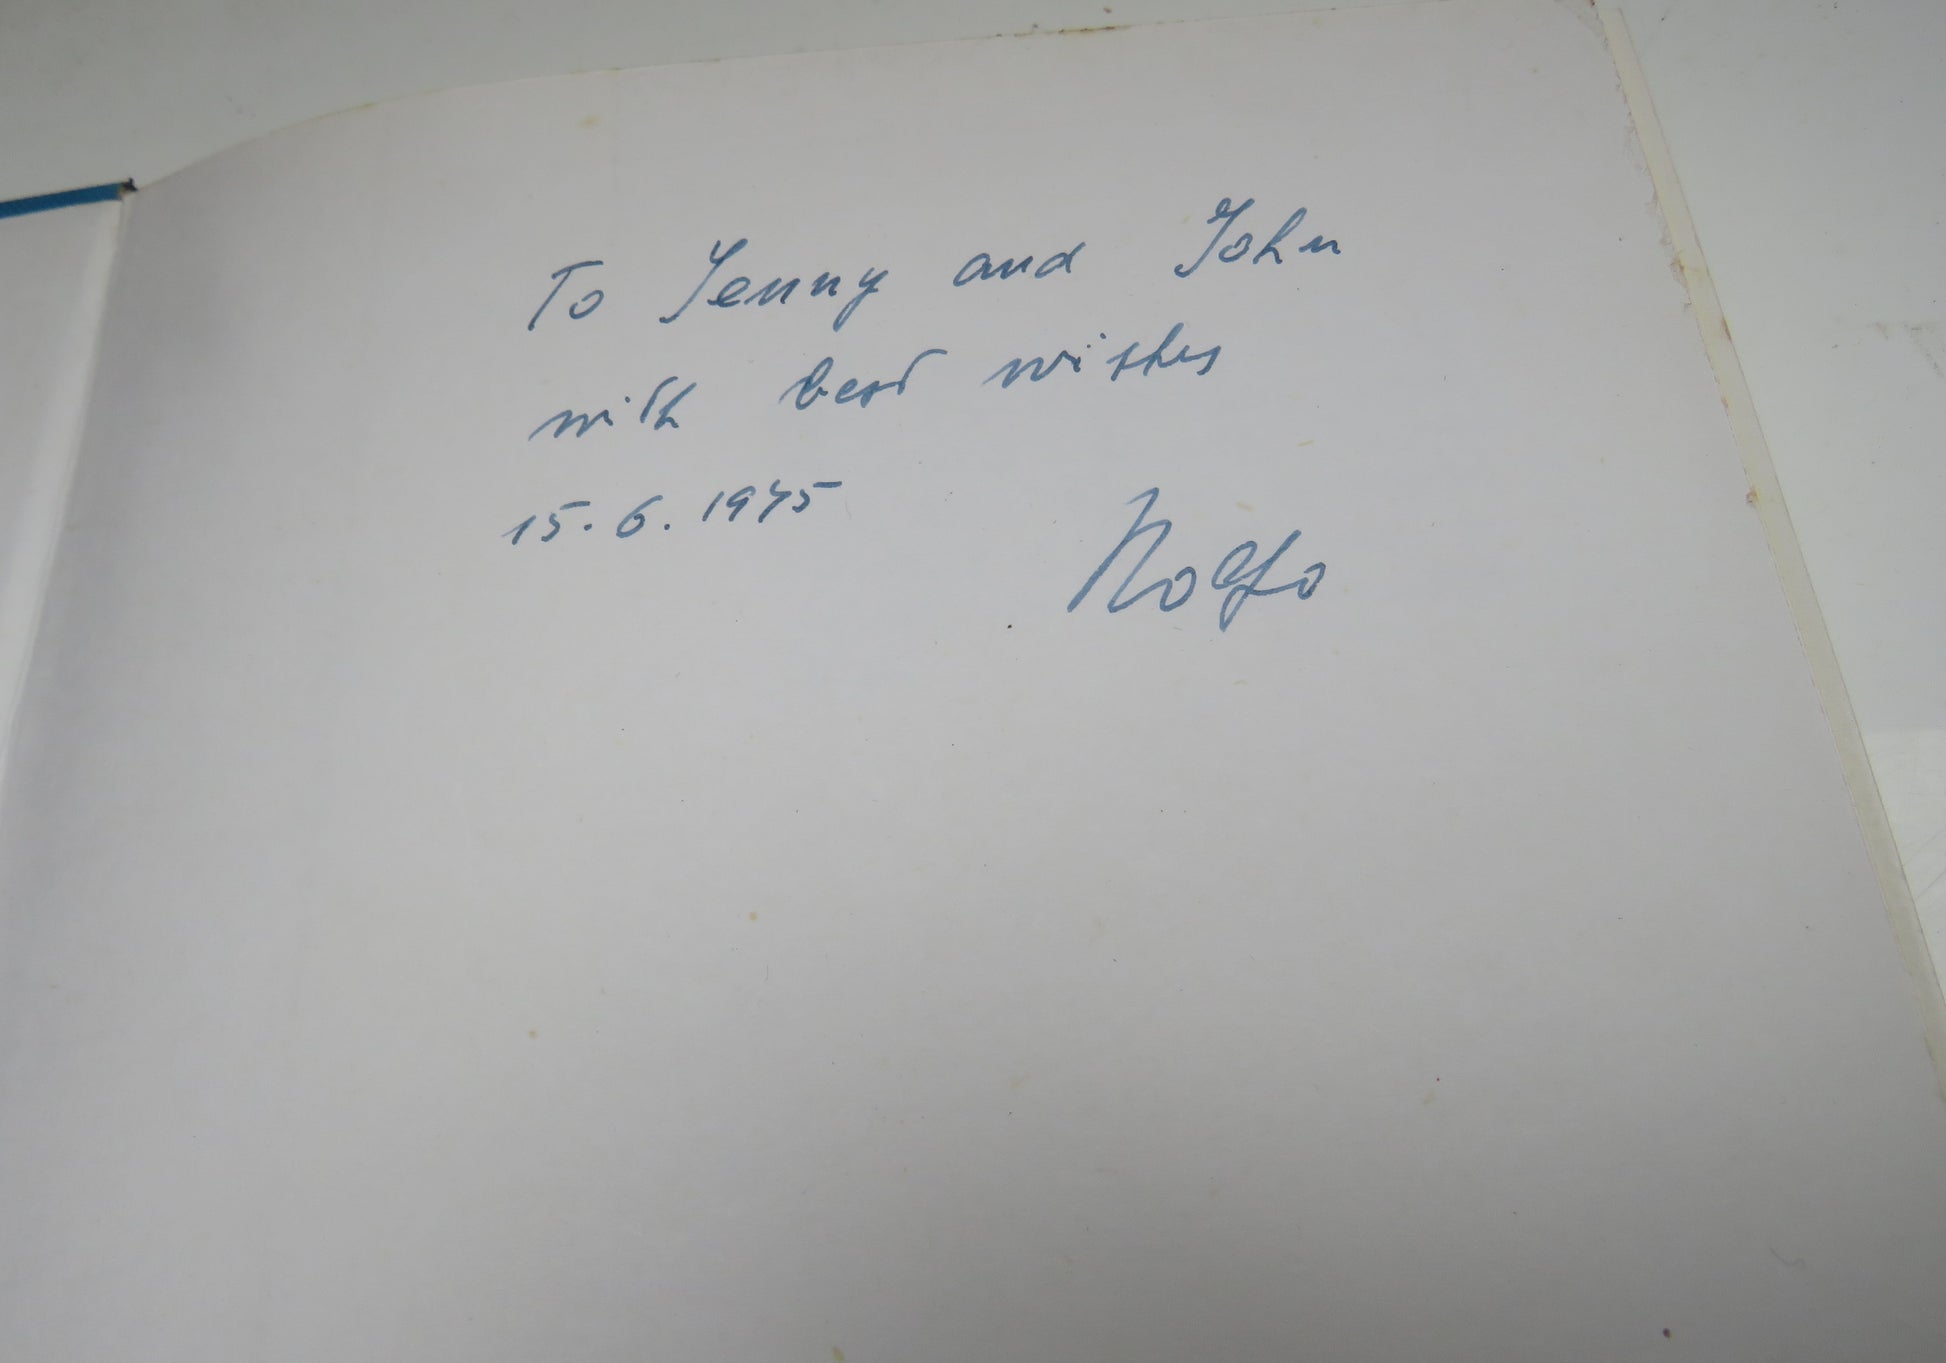 To Jenny and John
with best wishes
15.6.1975
Rolfo